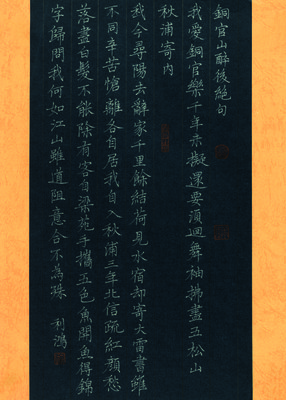 銅官山醉後絕句
我愛銅官樂千年未擬還要須迴舞袖拂盡五松山
秋浦寄內
我今尋陽去辭家千里餘結荷見水宿却寄大雷書雖
不同辛苦愴離各自居我自入秋浦三年北信疏紅顏愁
落盡白髮不能除有客自梁苑手攜五色魚開魚得錦
字歸問我何如江山雖道阻意合不為殊 利鴻